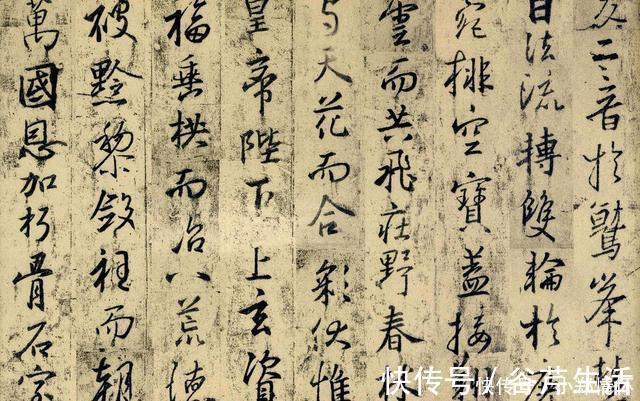 交二音於鷲峯
日法流轉雙輪於鹿
菀排空寶蓋接翔
雲而共飛莊野春林
與天花而合彩伏惟
皇帝陛下上玄資
福垂拱而治八荒德
被黔黎斂衽而朝
萬國恩加朽骨石室
快传号/谷芹生活